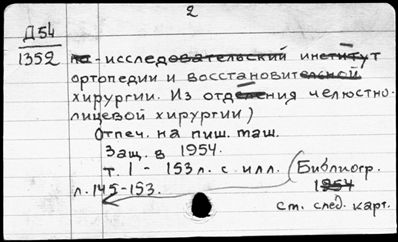 2
Д54
1352
но-исследовательский институт
ортопедии и восстановительной
хирургии. Из отделения челюстно-
лицевой хирургии)
Отпеч. на пиш. таш.
Защ. в 1954.
т. 1 - 153 л. с илл. (Библиогр.
л. 145-153.
1954
ст. след. карт.